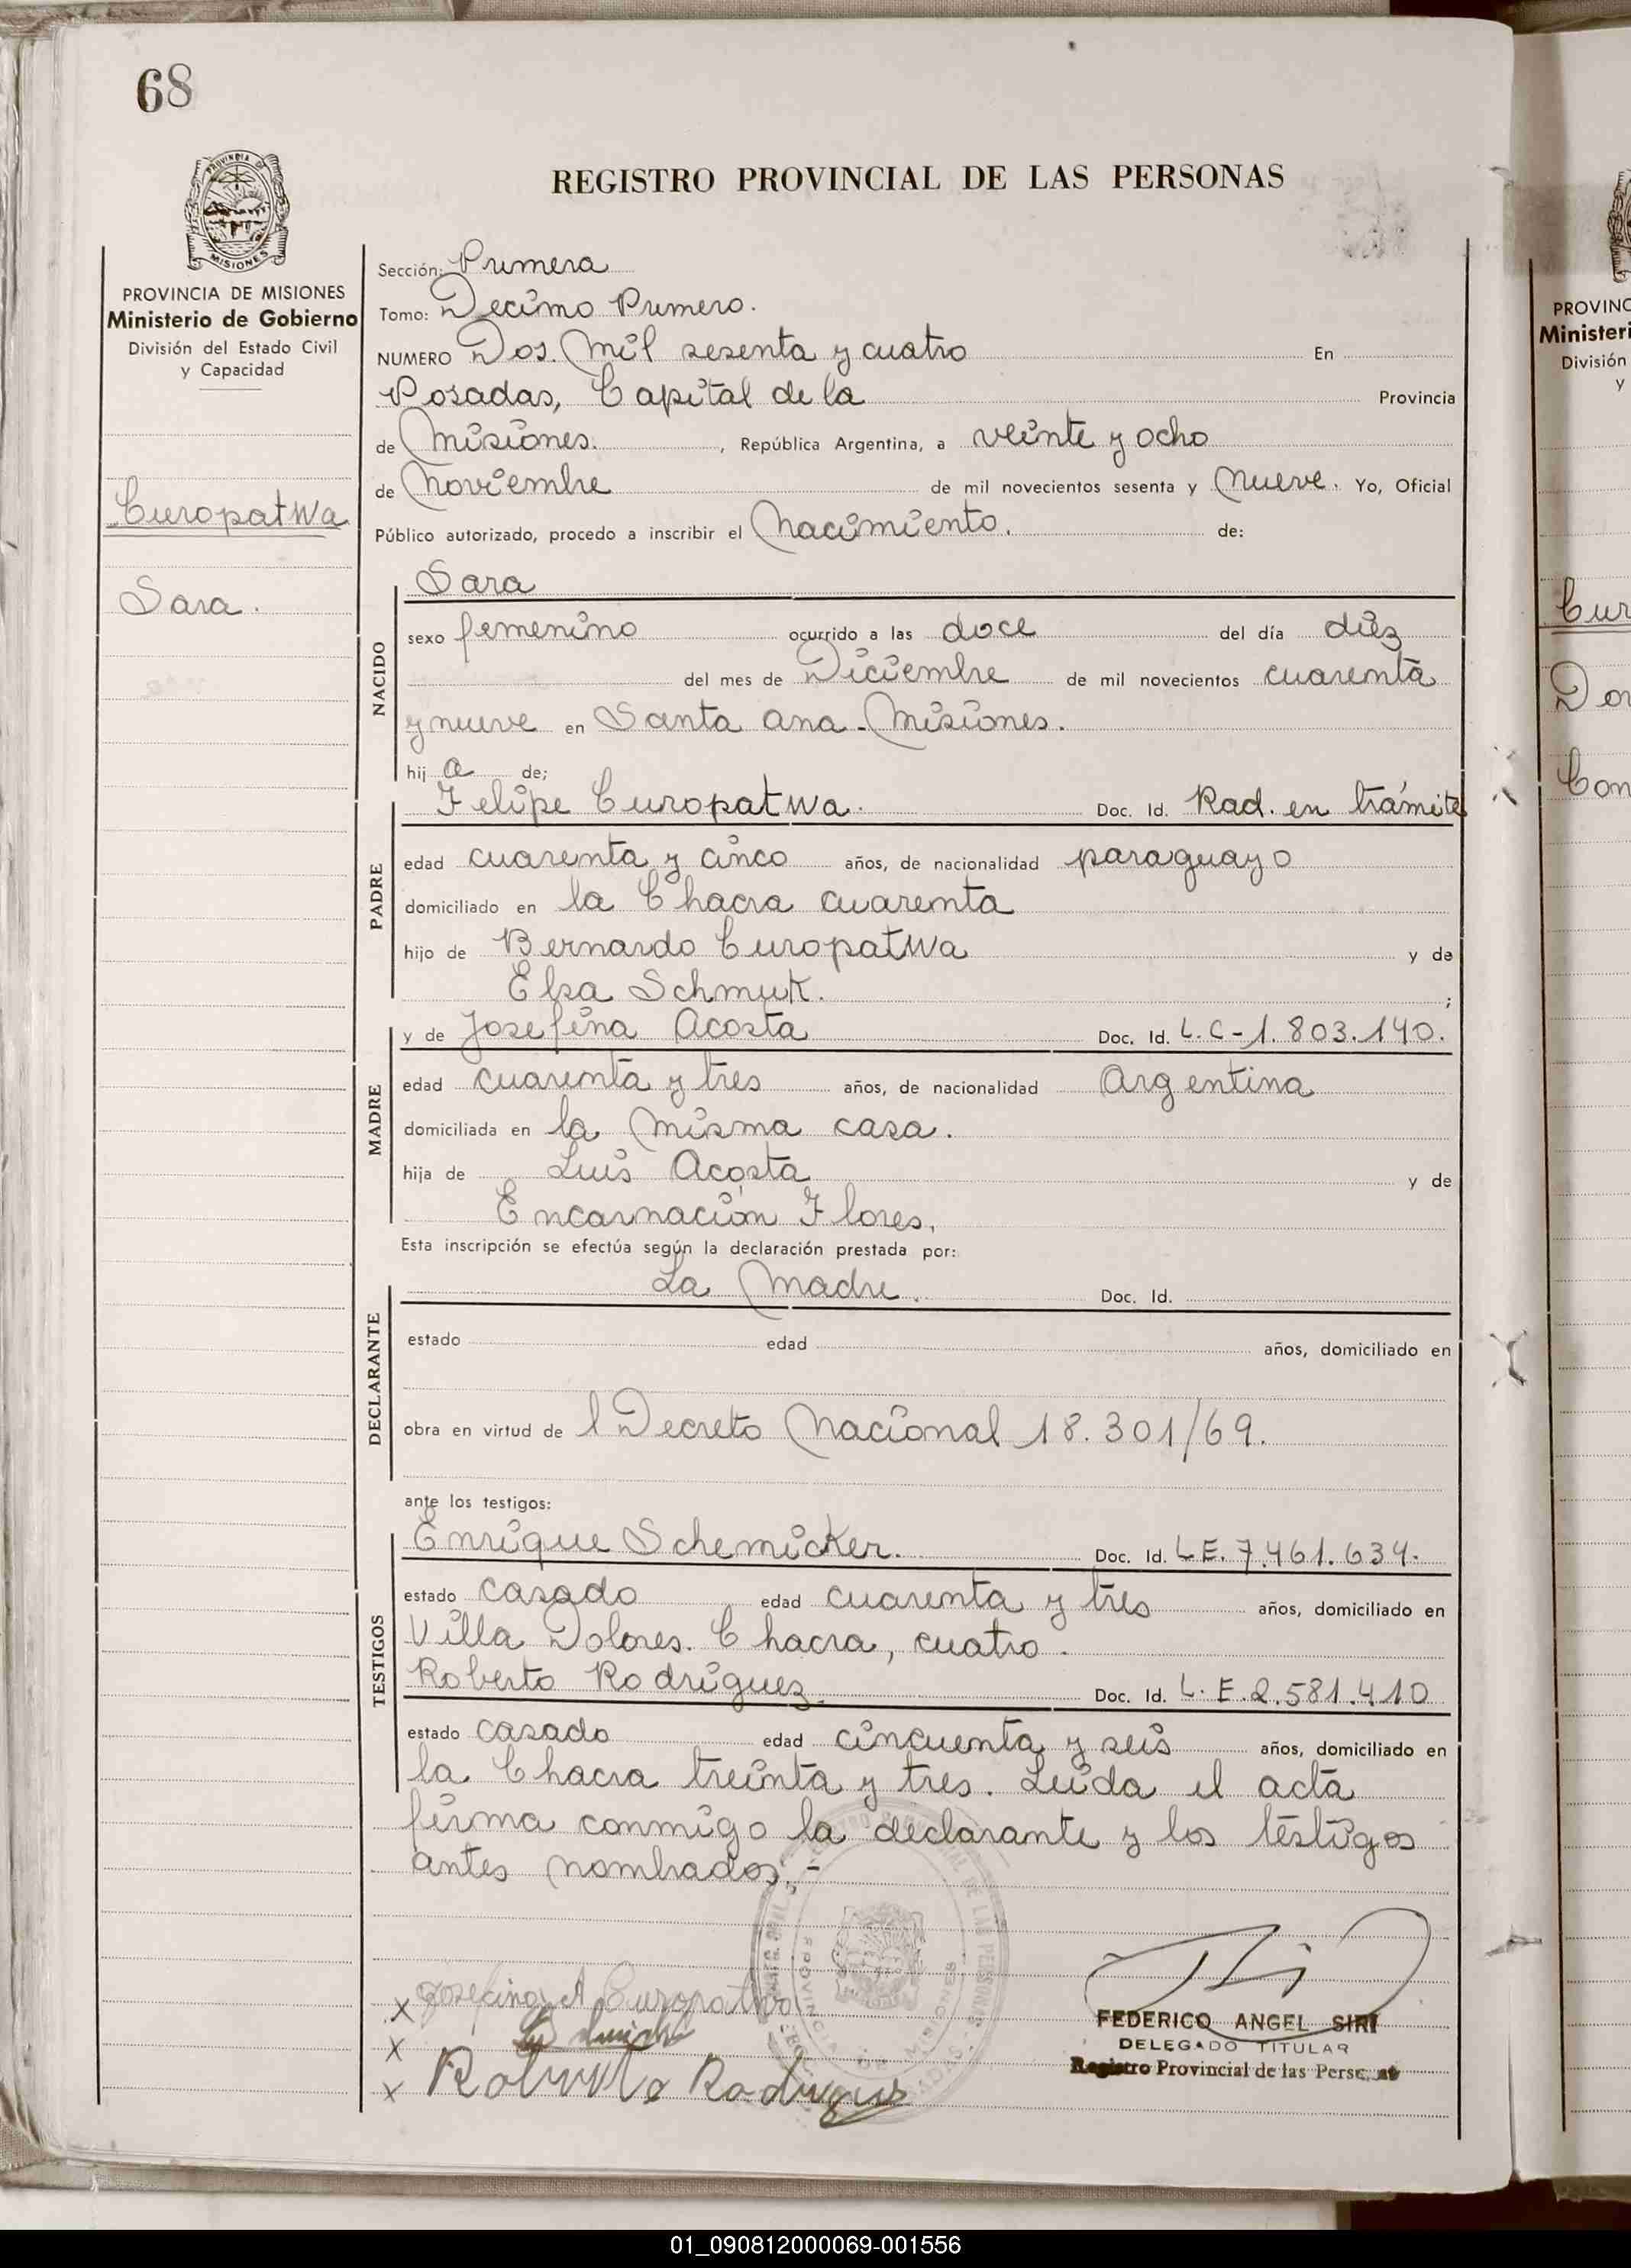 68
REGISTRO PROVINCIAL DE LAS PERSONAS
PROVINCIA DE MISIONES
Ministerio de Gobierno
División del Estado Civil
y Capacidad
Curopatwa
Sara.
Sección: Primera
Tomo: Decimo Primero.
NUMERO Dos. Mil sesenta y cuatro En
Posadas, Capital de la Provincia
de Misiones. , República Argentina, a veinte y ocho
de Noviembre de mil novecientos sesenta y Nueve. Yo, Oficial
Público autorizado, procedo a inscribir el Nacimiento. de:
NACIDO
Sara
sexo femenino ocurrido a las doce del día diez
del mes de Diciembre de mil novecientos cuarenta
y nueve en Santa Ana - Misiones.
hij a de;
PADRE
Felipe Curopatwa. Doc. Id. Rad. en trámite
edad cuarenta y cinco años, de nacionalidad paraguayo
domiciliado en la Chacra cuarenta
hijo de Bernardo Curopatwa y de
Elsa Schmuk. ;
MADRE
y de Josefina Acosta Doc. Id. L.C-1.803.140.
edad cuarenta y tres años, de nacionalidad Argentina
domiciliada en la misma casa.
hija de Luis Acosta y de
Encarnación Flores,
Esta inscripción se efectúa según la declaración prestada por:
DECLARANTE
La Madre. Doc. Id.
estado edad años, domiciliado en
obra en virtud de l Decreto Nacional 18.301/69.
ante los testigos:
TESTIGOS
Enrique Schemicker. Doc. Id. L.E. 7.461.634.
estado casado edad cuarenta y tres años, domiciliado en
Villa Dolores. Chacra, cuatro.
Roberto Rodríguez. Doc. Id. L.E.2.581.410
estado casado edad cincuenta y seis años, domiciliado en
la Chacra treinta y tres. Leida el acta
firma conmigo la declarante y los testigos
antes nombrados.-
x Josefina A Curopatwa
x
x Roberto Rodriguez
FEDERICO ANGEL SIRI
DELEGADO TITULAR
Registro Provincial de las Personas
01_090812000069-001556